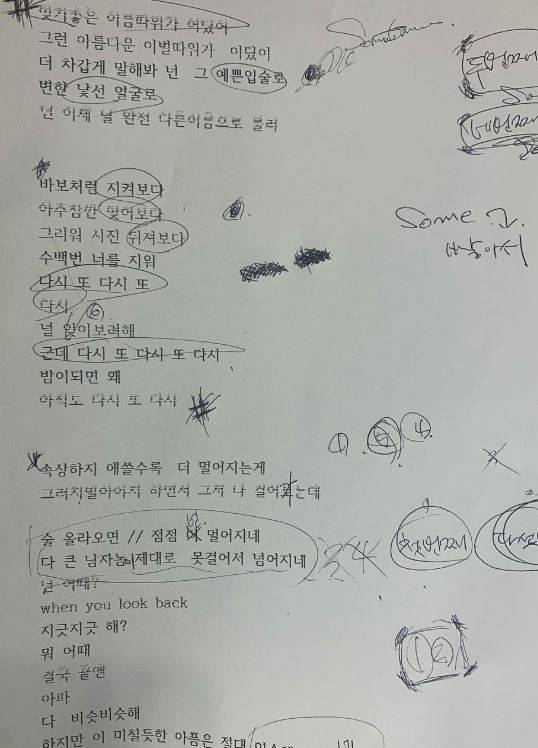 맞지않은 이름따위가 어딨어
그런 아름다운 이별따위가 이딨이
더 차갑게 말해봐 넌 그 예쁜입술로
변한 낯선 얼굴로
넌 이제 날 완전 다른이름으로 불러
두번째
네번째
바보처럼 지켜보다
아주잠깐 잊어보다
그리워 사진 뒤져보다
수백번 너를 지워
다시 또 다시 또
다시
널 잊이보려해
근데 다시 또 다시 또 다시
밤이되면 왜
아직도 다시 또 다시
Some
속상하지 애쓸수록 더 멀어지는게
그러지말아야지 하면서 그저 나 걸어
는데
① ⑤ ④
술 올라오면 // 점점 멀어지네
다 큰 남자놈이 제대로 못걸어서 넘어지네
첫번째
넌 어때?
when you look back
지긋지긋 해?
뭐 어때
① ②
결국 끝엔
아파
다 비슷비슷해
하지만 이 미칠듯한 아픔은 절대